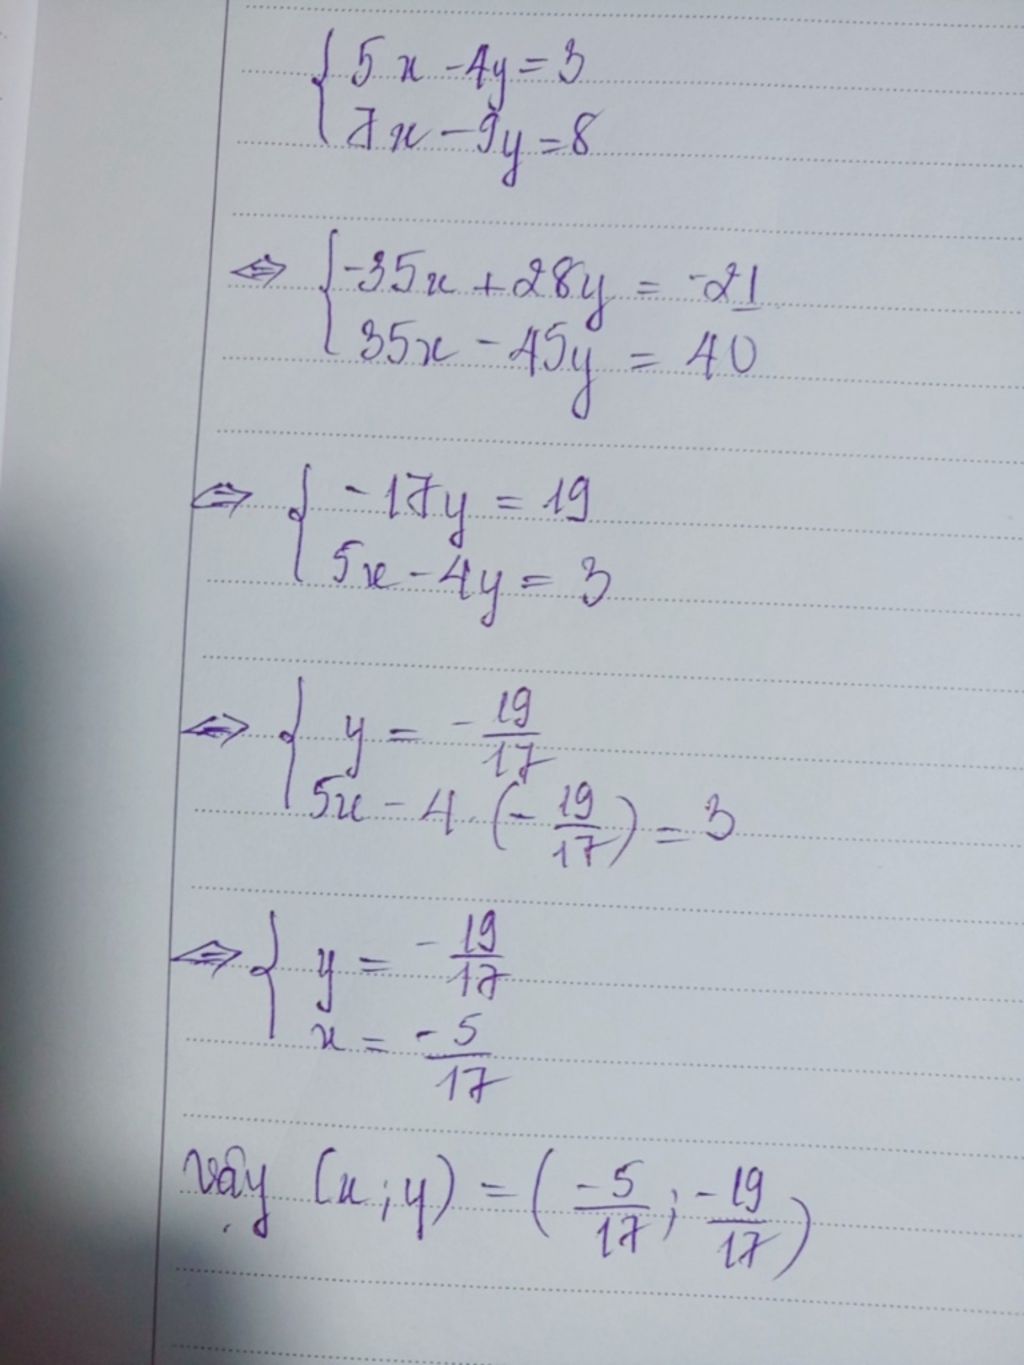 { 5x - 4y = 3
7x - 9y = 8
⇔ { -35x + 28y = -21
35x - 45y = 40
⇔ { -17y = 19
5x - 4y = 3
⇔ { y = - 19/17
5x - 4 . (- 19/17) = 3
⇔ { y = - 19/17
x = -5/17
vậy (x ; y) = ( -5/17 ; -19/17 )